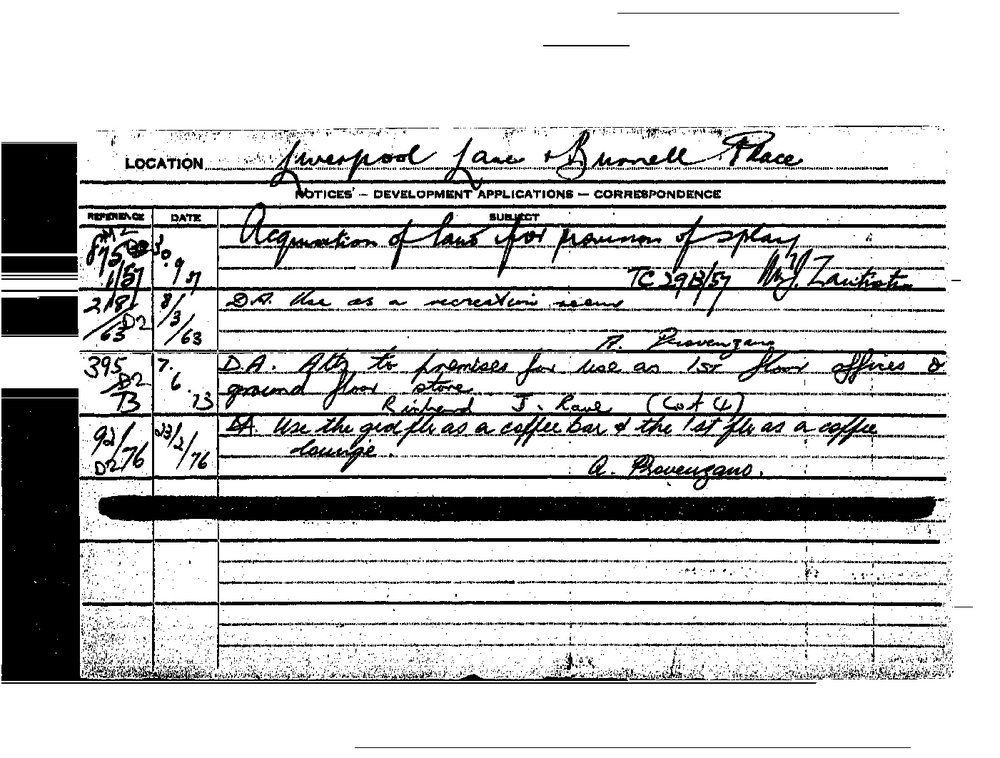 LOCATION Liverpool Lane & Burnell Place
NOTICES – DEVELOPMENT APPLICATIONS – CORRESPONDENCE
REFERENCE DATE SUBJECT
875 1/57 30.9.57 Acquisition of land for provision of splay
TC 29B/57
218/ D2 /63 8/3/63 D.A. Use as a recreation room
A. Provenzano
395 D2 73 7.6.73 D.A. Altz to premises for use as 1st floor offices &
ground floor store
Richard J. (Lot 4)
92/ D2/76 23/2/76 DA. Use the grd flr as a coffee bar & the 1st flr as a coffee
lounge.
A. Provenzano.